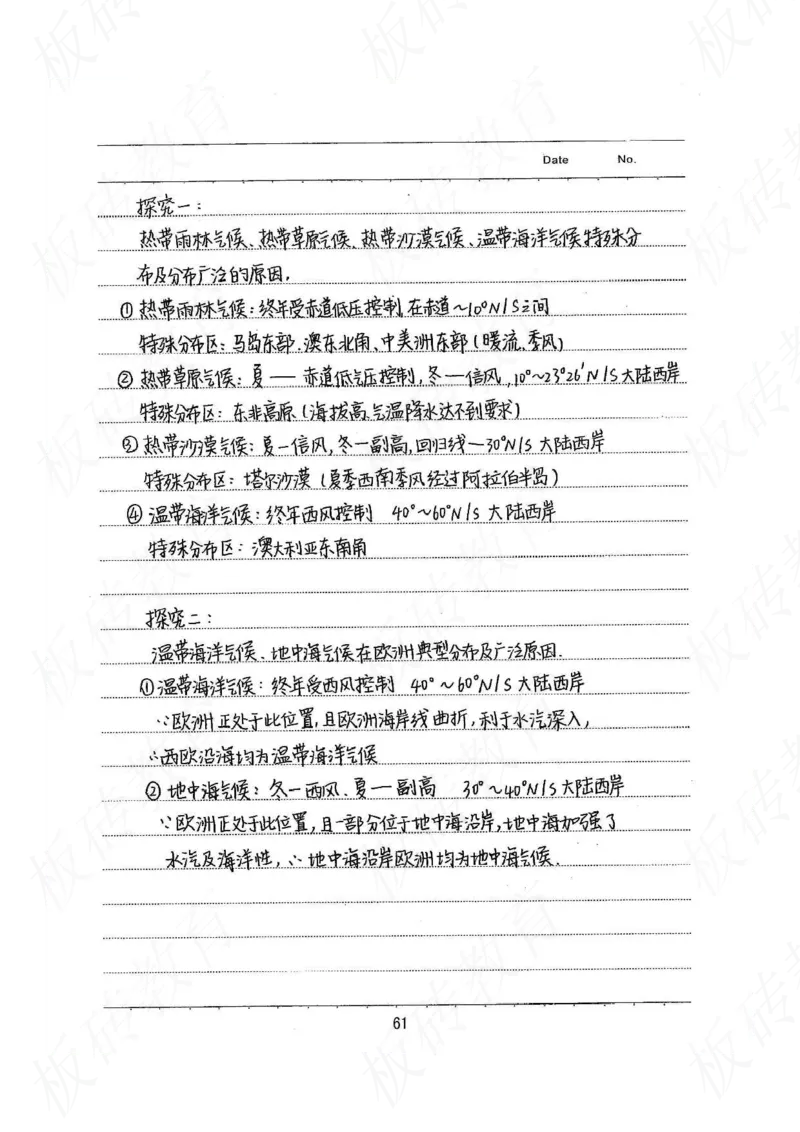 Date No.
探究一：
热带雨林气候、热带草原气候、热带沙漠气候、温带海洋气候特殊分
布及分布广泛的原因.
①热带雨林气候：终年受赤道低压控制,在赤道~10°N/S之间
特殊分布区：马岛东部.澳东北角、中美洲东部(暖流、季风)
②热带草原气候：夏——赤道低气压控制,冬—信风,10°~23°26′N/S大陆西岸
特殊分布区：东非高原(海拔高,气温降水达不到要求)
③热带沙漠气候：夏—信风,冬—副高,回归线—30°N/S 大陆西岸
特殊分布区：塔尔沙漠(夏季西南季风经过阿拉伯半岛)
④温带海洋气候：终年西风控制 40°~60°N/S 大陆西岸
特殊分布区：澳大利亚东南角
探究二：
温带海洋气候、地中海气候在欧洲典型分布及广泛原因.
①温带海洋气候：终年受西风控制 40°~60°N/S大陆西岸
∵欧洲正处于此位置,且欧洲海岸线曲折,利于水汽深入,
∴西欧沿海均为温带海洋气候
②地中海气候：冬—西风、夏—副高 30°~40°N/S大陆西岸
∵欧洲正处于此位置,且一部分位于地中海沿岸,地中海加强了
水汽及海洋性,∴地中海沿岸欧洲均为地中海气候.
61
板砖教育